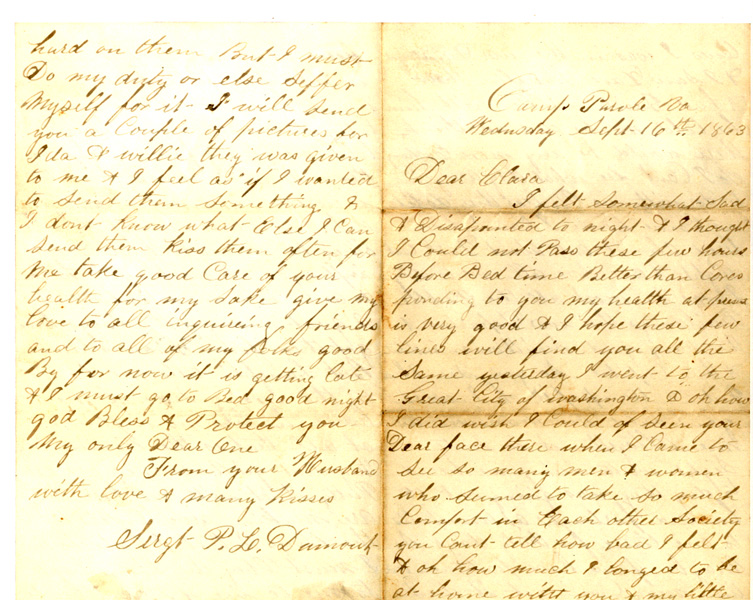 Camp Parole Va
Wednsday Sept 16th 1863
Dear Clara
I felt somewhat Sad
& Disapointed to night & I thought
I Could not Pass these few hours
Before Bed time Better than Cores
ponding to you my health at
is very good & I hope these few
lines will find you all the
Same yesterday I went to the
Great City of washington & oh how
I did wish I Could of seen your
Dear face there when I Came to
See so many men & women
who seemed to take so much
Comfort in Each other Society
you Cant tell how bad I felt
& oh how much I longed to be
at home with you & my little
hard on them But I must
Do my duty or else Suffer
Myself for it I will send
you a Couple of pictures for
Ida & willie they was given
to me & I feel as if I wanted
to send them something &
I dont Know what Else I Can
Send them Kiss them often for
Me take good Care of your
health for my Sake give my
love to all inquireing friends
and to all of my folks good
By for now it is getting late
& I must go to Bed good night
god Bless & Protect you
My only Dear One
From your Husband
with love & many Kisses
Sergt P. L.